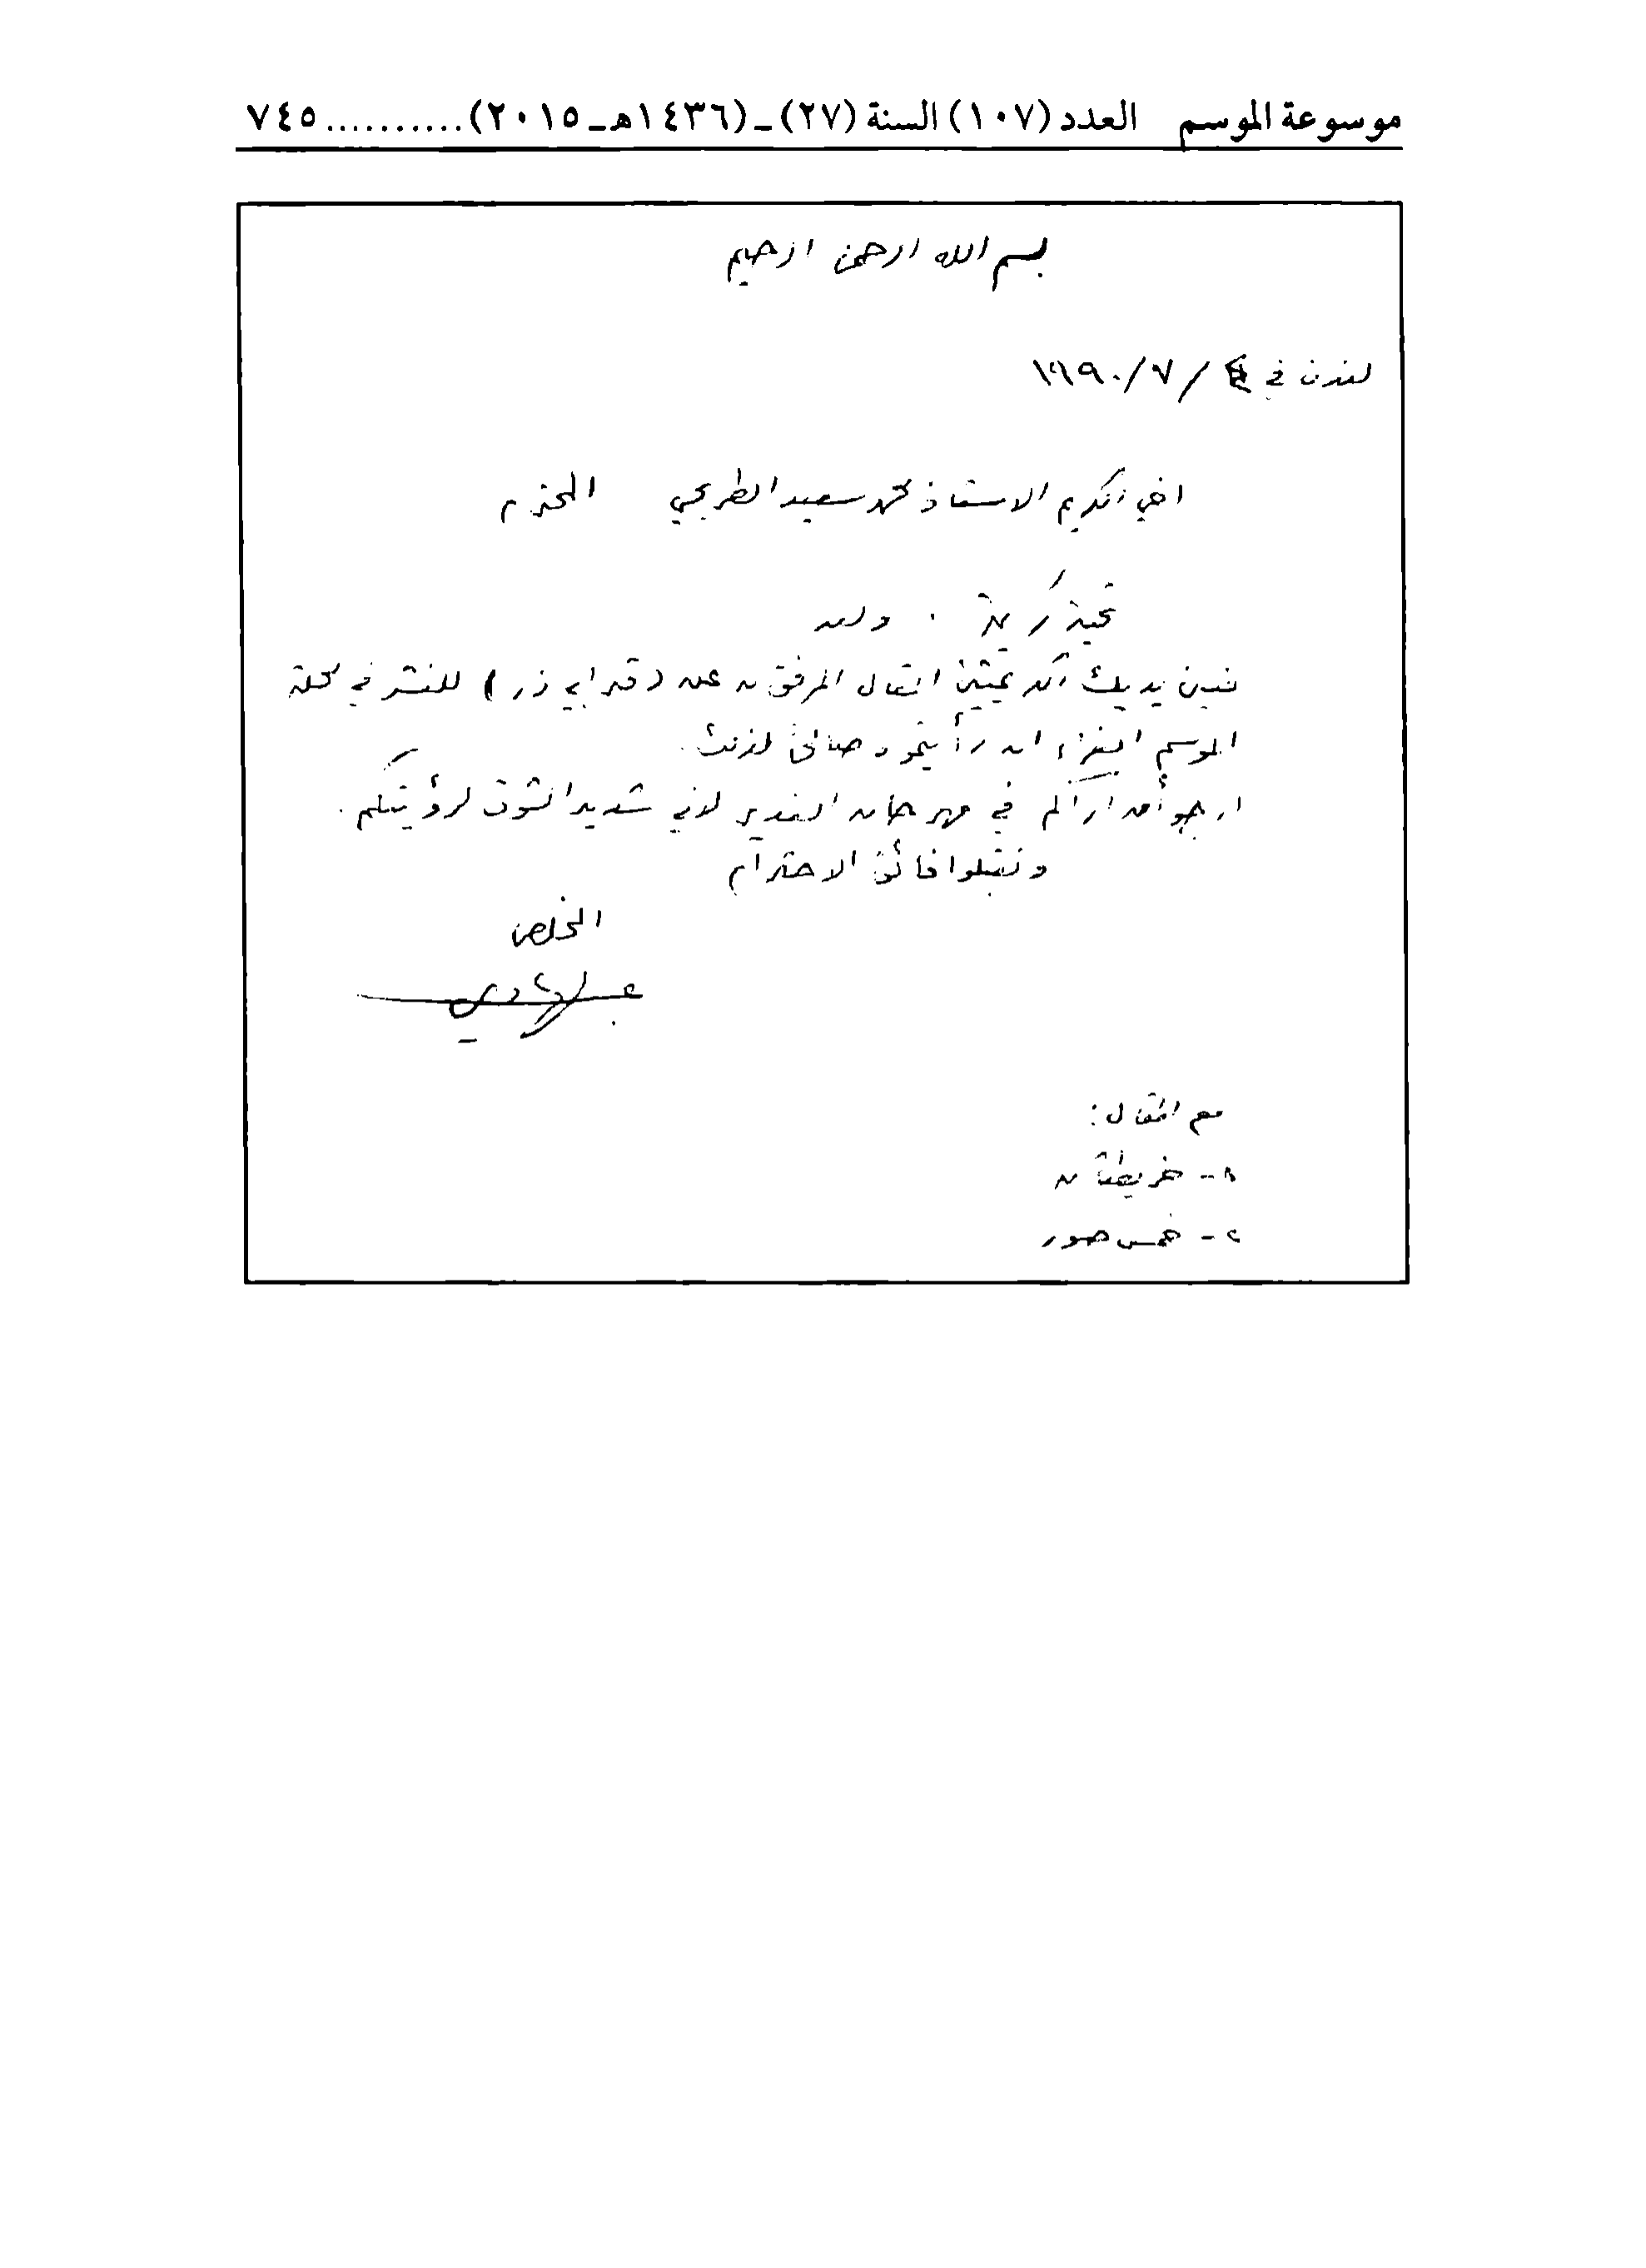 موسوعة الموسم العدد (١٠٧) السنة (٢٧) ـ (١٤٣٦هـ ـ ٢٠١٥)..........٧٤٥
بسم الله الرحمن الرحيم
لندن في ٤/ ٧/ ١٩٩٠
اخي الكريم الاستاذ محمد سعيد الطريحي المحترم
تحية كريمة . وبعد
فبين يديك الكريمتين المقال المرفق عن (قبر ابي ذر) للنشر في مجلة
الموسم الغراء ان رأيتموه صالحاً لذلك.
ارجو أن اراكم في مهرجان الغدير لاني شديد الشوق لرؤيتكم.
وتقبلوا فائق الاحترام
المخلص
عبدالهادي
مع المقال:
١- خريطتان
٢- خمس صور